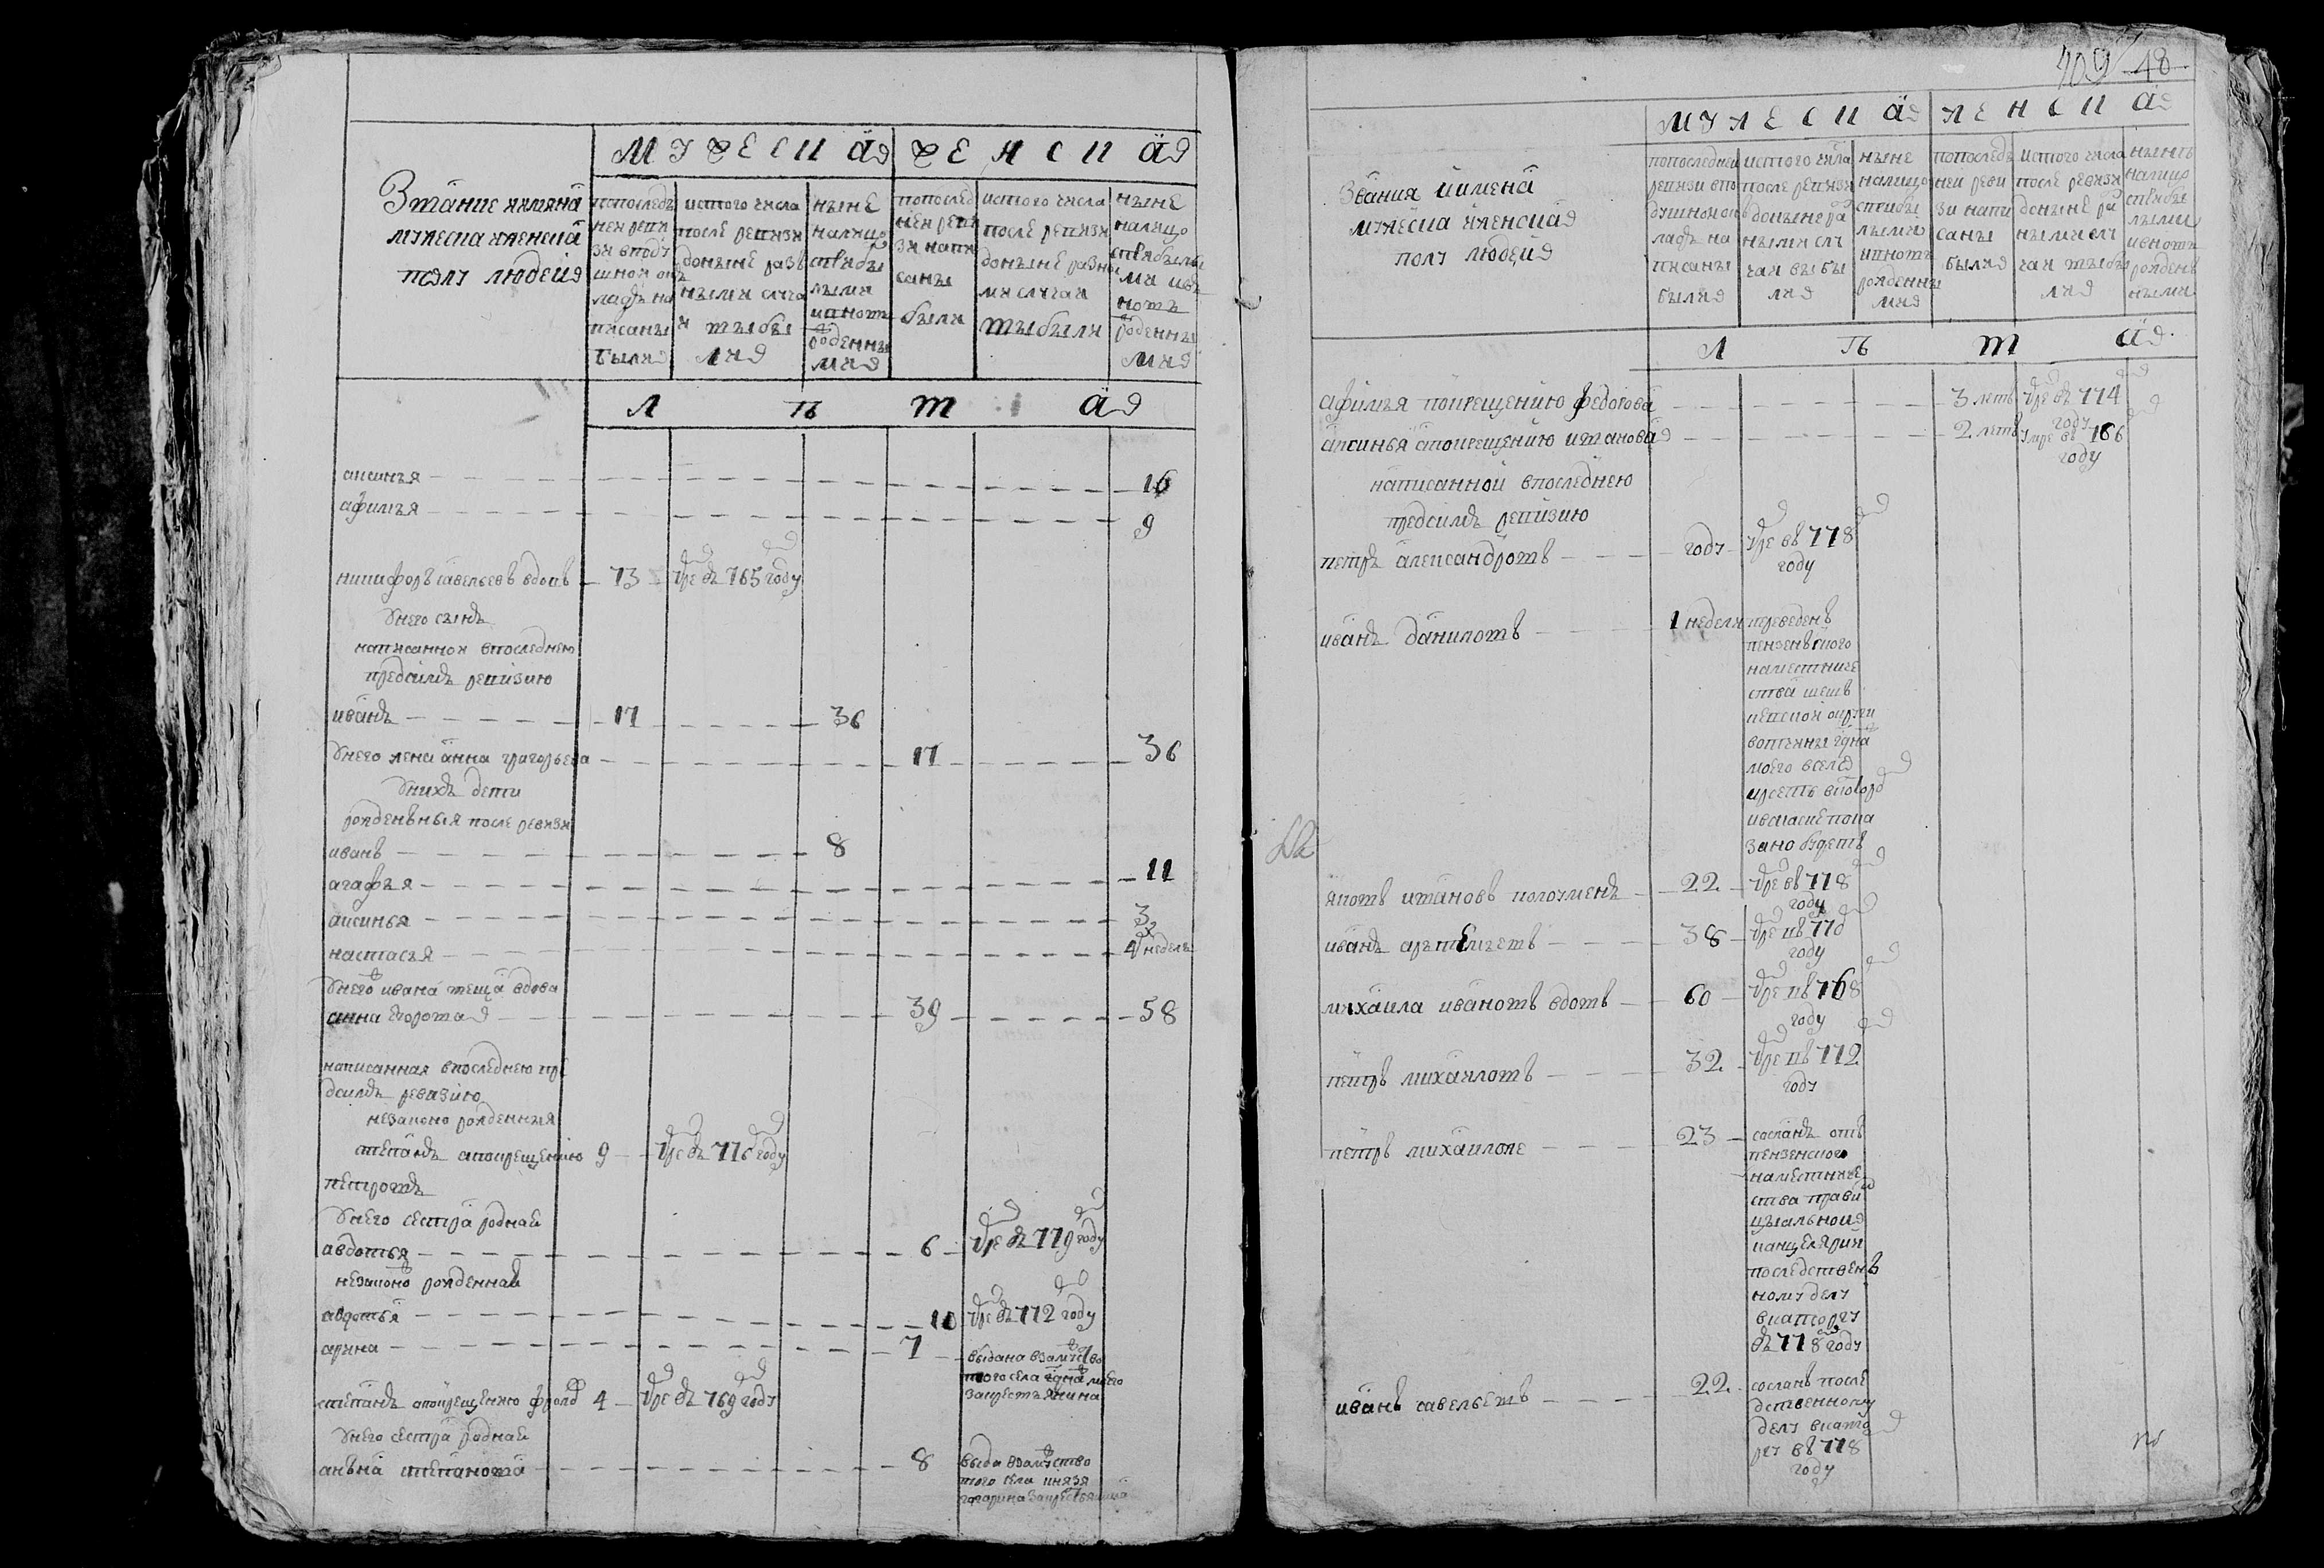 Звание и имяна
мужеска и женска
полу людей
мужеска
женска
попоследъ
ней реви
зи вподу
шной ок
ладъ на
писаны
были
истого числа
после ревизи
доныне разъ
ными случа
и выбы
ли
ныне
налицо
сприбы
лыми
ивновь
рожденны
ми
попослед
ней реви
зи напи
саны
были
истого числа
после ревизи
доныне разны
ми случаи
выбыли
ныне
налицо
сприбылы
ми ивъ
новь
рожденны
ми
л ѣ т а
аксинья 16
афимья 9
никифоръ савельевъ вдовъ 73 умре въ 765 году
унего сынъ
написанной впоследнею
предсимъ ревизию
иванъ 17 36
унего жена анна григорьева 17 36
унихъ дети
рожденъныя после ревизи
иванъ 8
агафья 11
аксинья 3
настасья 4 недели
унего ивана теща вдова
анна егорова 39 58
написанная впоследнею пре
дсимъ ревизию
незаконо рожденныя
степанъ апокрещению 9 умре въ 776 году
петровъ
унего сестра родная
авдотья 6 умре въ 779 году
незаконо рожденная
авдотья 10 умре въ 772 году
арина 7 выдана взамужство
того села
закрестьянина
степанъ апокрещению фролов 4 умре въ 769 году
унего сестра родная
анъна степанова 8 выда взамуство
того села князя
гагарина закрестьянина
409 48
Звания иимена
мужеска иженска
полу людей
мужеска
женска
попоследней
ревизи впо
душной ок
ладъ на
писаны
были
истого числа
после ревизи
доныне ра
ными слу
чаи выбы
ли
ныне
налицо
сприбы
лыми
ивновь
рожденны
ми
попоследъ
ней реви
зи напи
саны
были
истого числа
после ревизи
доныне ра
ными слу
чаи выбы
ли
ныне
налицо
сприбы
лыми
ивновь
рожденъ
ными
л ѣ т а
афимья покрещению федорова 3 летъ умре въ 774
году
аксинья апокрещению иванова 2 летъ умре въ 166
году
написанной впоследнею
предсимъ ревизию
петръ александровъ году умре въ 778
году
иванъ даниловъ 1 недели переведенъ
пензенъского
наместниче
ства шешъ
кевской округи
вотчины
моего всело
зано будетъ
яковъ ивановъ 22 умре въ 778
году
иванъ артемьевъ 38 умре въ 770
году
михаила ивановъ вдовъ 60 умре въ 768
году
петръ михаиловъ 32 умре въ 772
году
петръ михаилове 23 сосланъ отъ
пензенского
наместниче
ства прови
цыальной
канцелярии
последственъ
ному делу
вкаторгу
въ 778 году
иванъ савельевъ 22 сосланъ после
дственному
делу вкато
ргу въ 778
году